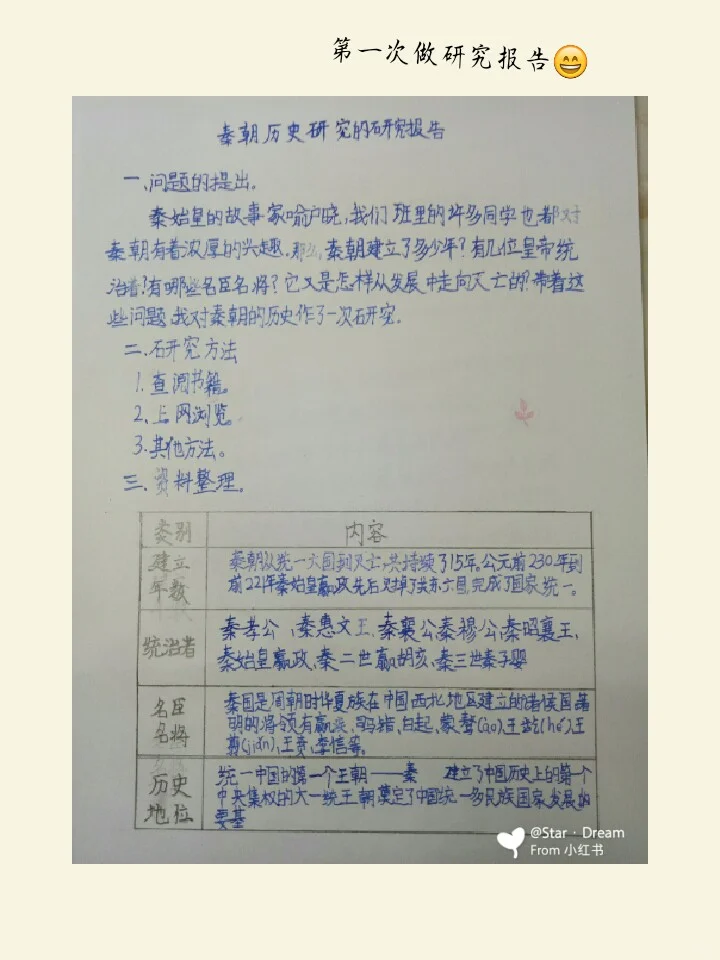 第一次做研究报告😄
秦朝历史研究的研究报告
一.问题的提出.
秦始皇的故事家喻户晓,我们班里的许多同学也都对
秦朝有着浓厚的兴趣.那么,秦朝建立了多少年?有几位皇帝统
治者?有哪些名臣名将?它又是怎样从发展中走向灭亡的?带着这
些问题,我对秦朝的历史作了一次研究.
二.研究方法
1.查阅书籍。
2.上网浏览。
3.其他方法。
三.资料整理.
类别 内容
建立年数
秦朝从统一六国到灭亡,共持续了15年。公元前230年到
前221年秦始皇嬴政先后灭掉了其六国,完成了国家统一。
统治者
秦孝公、秦惠文王、秦襄公、秦穆公、秦昭襄王、
秦始皇嬴政、秦二世嬴胡亥、秦三世秦子婴
名臣名将
秦国是周朝时华夏族在中国西北地区建立的诸侯国.著
明的将领有嬴 司马错、白起、蒙骜(ao)、王龁(hé)、王
翦(jiǎn)、王贲、李信等。
历史地位
统一中国的第一个王朝——秦 建立了中国历史上的第一个
中央集权的大一统王朝奠定了中国统一多民族国家发展的
要基
@Star · Dream
From 小红书